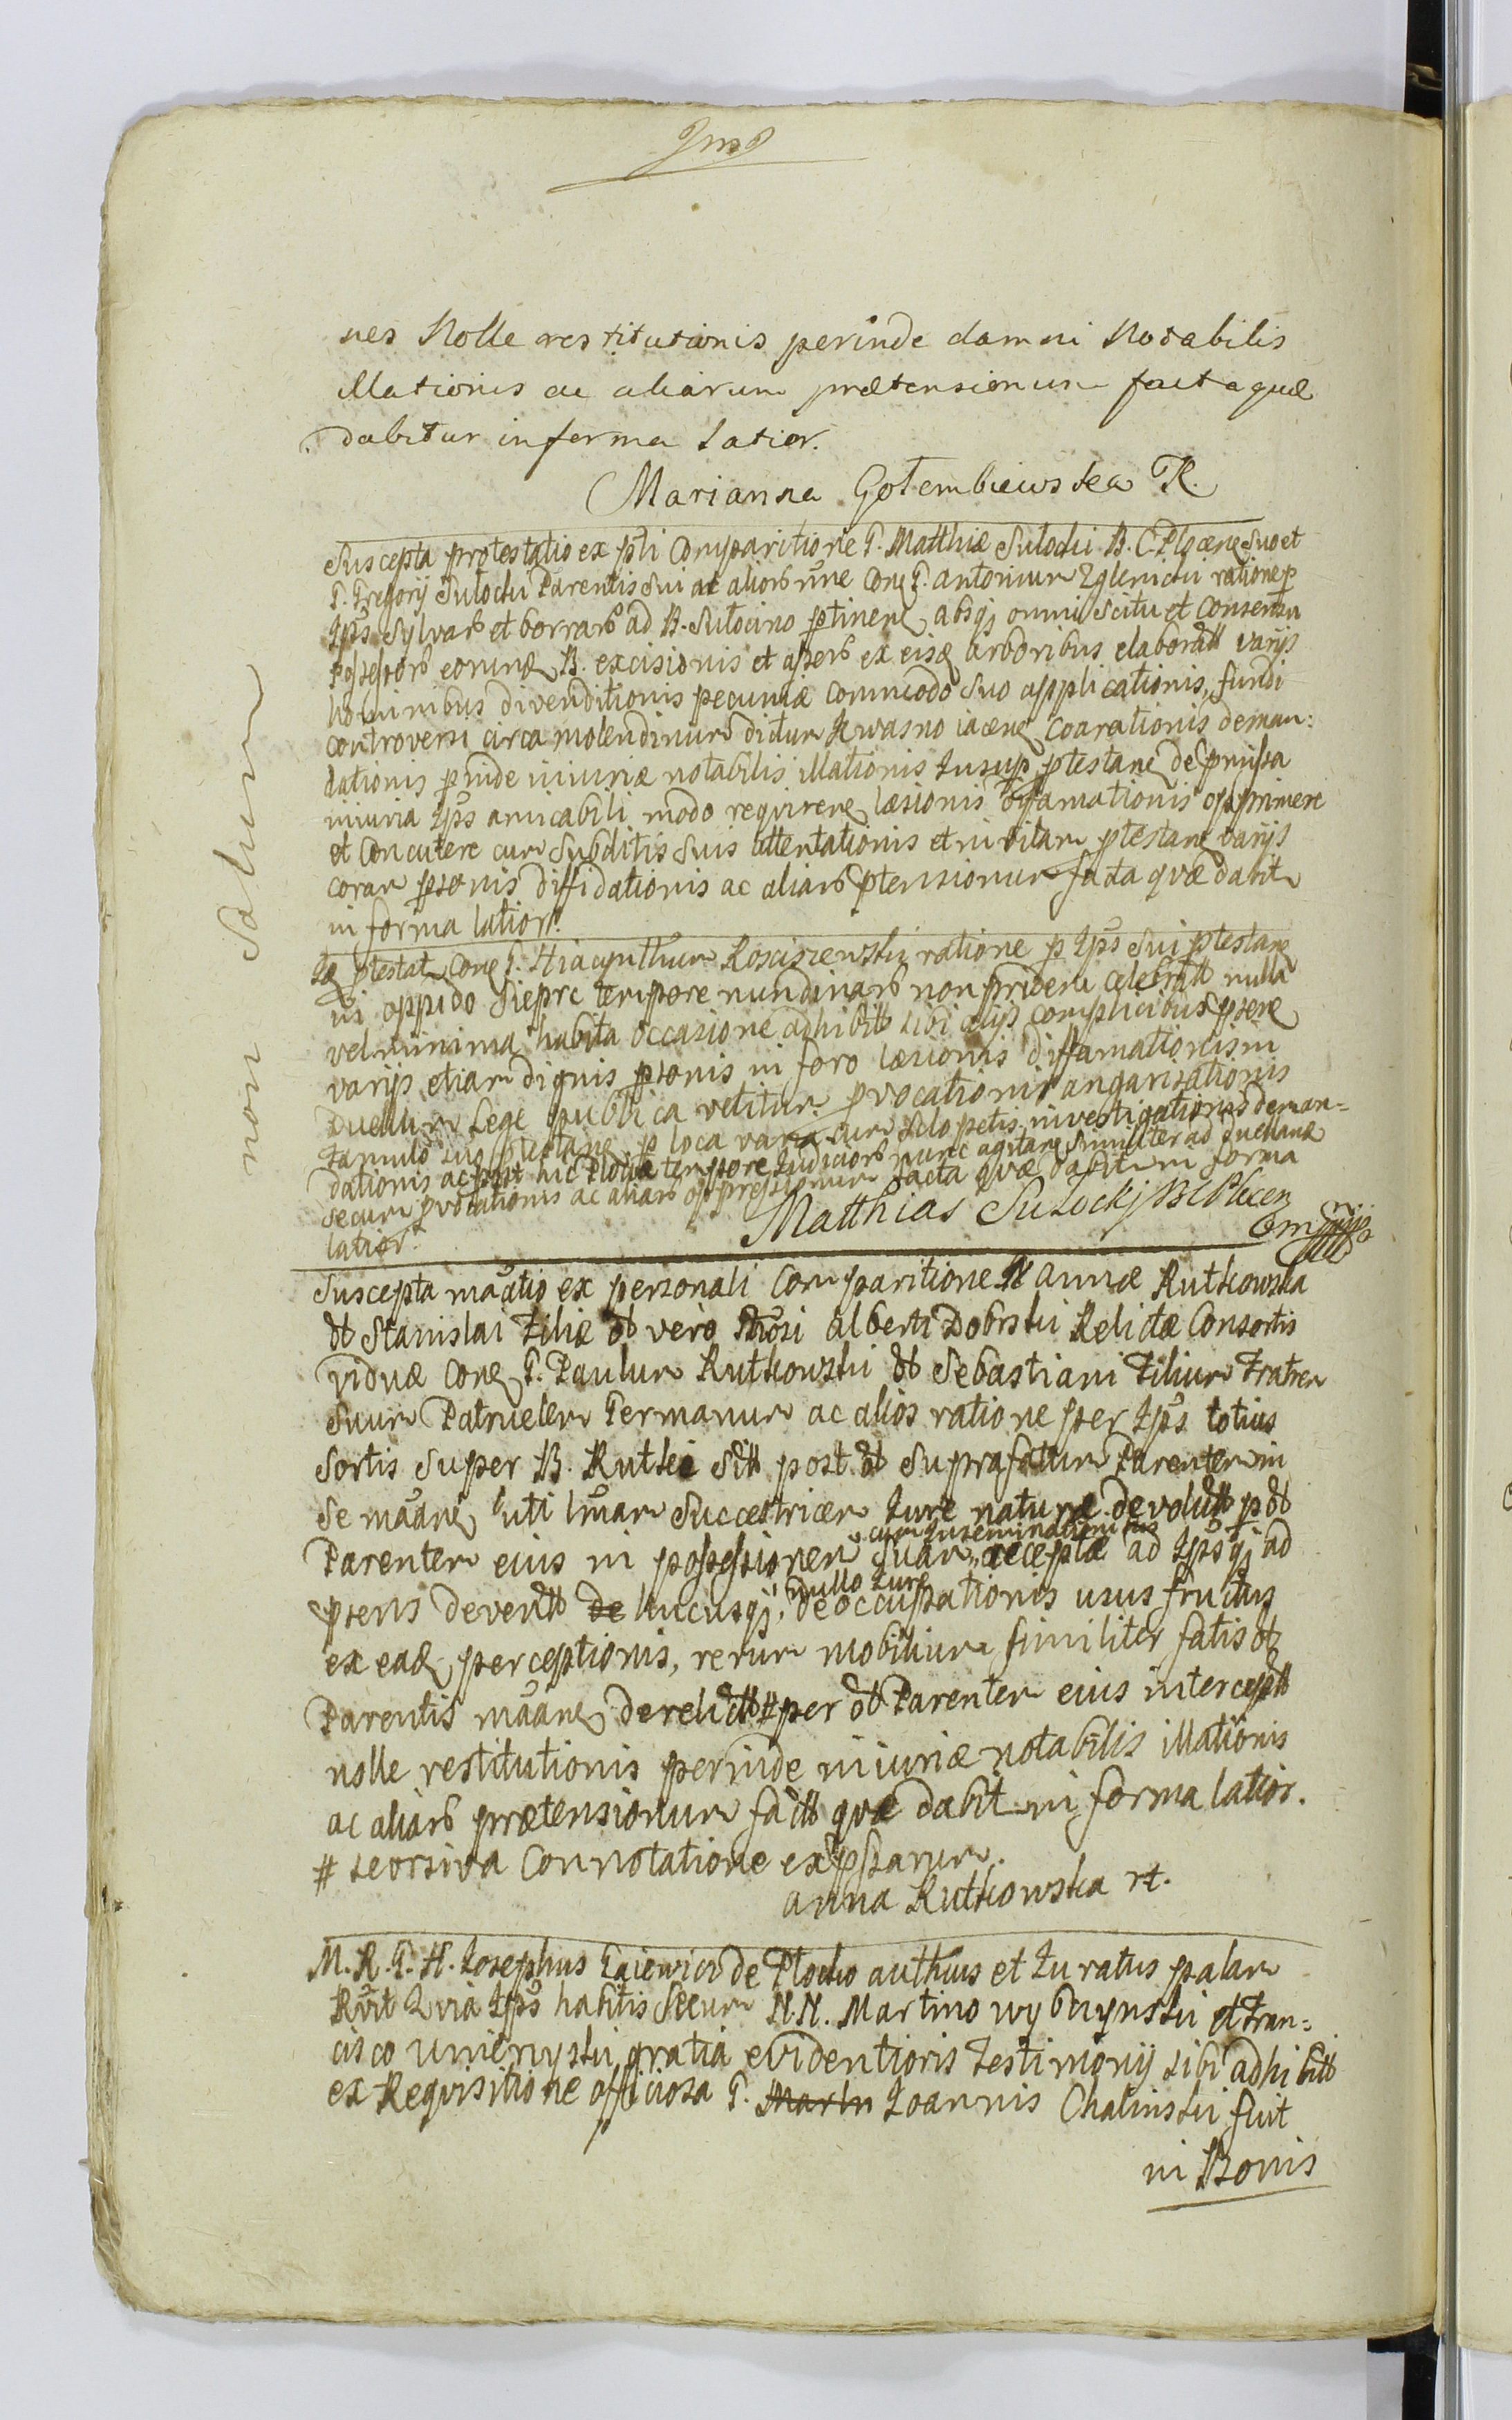 nes Nolle restitutionis perinde damni Notabilis
illationis ac aliarum prætensionum facta quæ
dabitur in forma Latior.
Marianna Gołembiewska R.
Suscepta protestatio ex psti Comparitione G. Matthiæ Sułocki B. C. Plocen Suo et
G. Gregorij Sułocki Parentis Sui ac alior nne Con G. Antonium Zglenicki ratione p
Ips Sylvar et borrar ad B. Sułocino ptinen absqj omni Scitu et Consensu
possessor eorund B. excisionis et asser ex eisd arboribus elaborat varijs
hominibus divenditionis pecuniæ commodo Suo applicationis, fundi
controversi circa molendinum dictum Kwasno iacen Coarationis deman:
dationis pinde iniuriæ notabilis illationis Insup ptestan de pmissa
iniuria Ips amicabili modo requiren læsionis diffamationis opprimere
et Concutere cum Subditis Suis attentationis et in vitam ptestan varijs
coram psonis diffidationis ac aliar ptensionum facta quæ dabit
in forma latior.
It ptestat Con G. Hiacynthum Kosciszewski ratione p Ips Sui ptestan
in oppido Siepre tempore nundinar non pridem celebrat nulla
vel minima habita occasione adhibit sibi alijs complicibus psen
varijs etiam dignis psonis in foro læsionis diffamationis in
Duellum Lege publica vetitum pvocationis angarisationis
famulo suo ptestan p loca varia cum sclopetis investigationis deman=
dationis ac post hic Plociæ tempore Judicior nunc agitan Similiter ad duelland
secum pvocationis ac aliar oppressionum facta quæ dabit in forma
latior.
Matthias Sułockj BCPłocen
mpp
Suscepta mãatio ex personali Comparitione N Annæ Rutkowska
ol Stanislai Filiæ ol vero Alberti Dobrski Relictæ Consortis
viduæ Con G. Paulum Rutkowski ol Sebastiani Filium Fratrem
Suum Patruelem Germanum ac alios ratione per Ips totius
Sortis Super B. Rutki Sitt post ol Suprafatum Parentem in
Se mãan uti lmam Succestricem Jure naturæ devolut p ol
Parentem eius in possessionem Suam cum Inseminationibus receptæ ad Ipsqj ad
psens devent de hucusqj, nullo Jure de occupationis usus fructus
ex ead perceptionis, rerum mobilium similiter fatis ol
Parentis mãan derelict # per ol Parentem eius intercept
nolle restitutionis perinde iniuriæ notabilis illationis
ac aliar prætensionum fact quæ dabit in forma latior.
# seorsiva Connotatione expssarum.
Anna Rutkowska rt.
M. R. G. H. Josephus Gaiewicz de Plocko authus et Juratus palam
Rvit Quia Ips habitis Secum N.N. Martino wybczynski et Fran=
cisco Umienyski gratia evidentioris testimonij sibi adhibitt
ex Requisitione officiosa G. Martn Joannis Chalinski fuit
in Bonis
non Solum